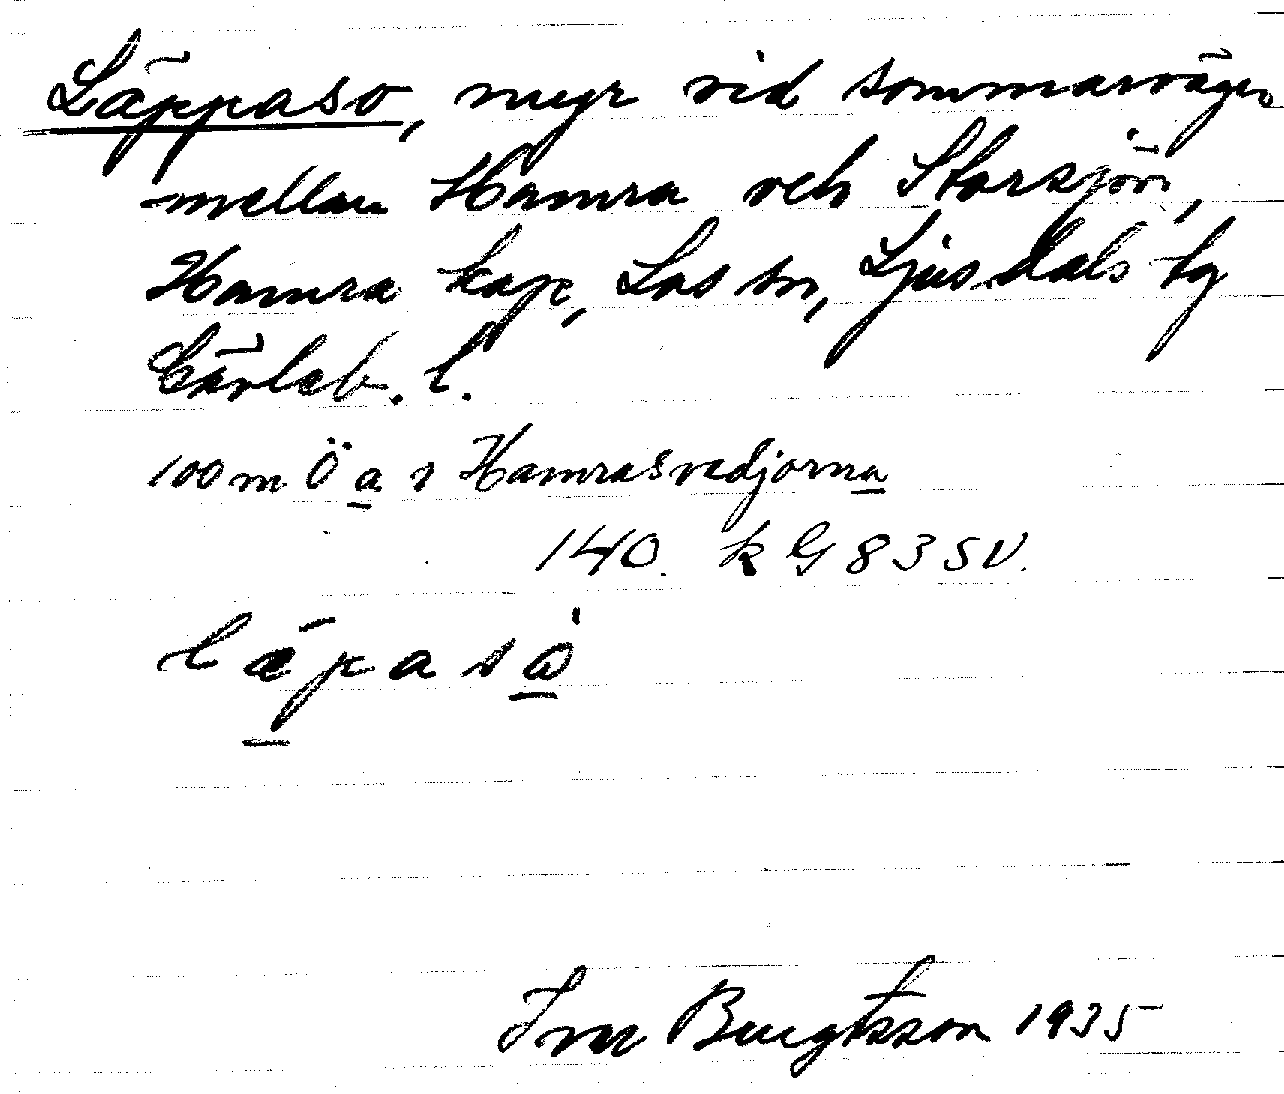 Läppaso, myr vid sommarvägen
mellan Hamra och Storsjön,
Hamra kap, Los sn, Ljusdals tg
Gävleb. l.
100 m Ö a v Hamrasvedjorna
140. k G 83 SV.
läpaså
Im Bengtsson 1935